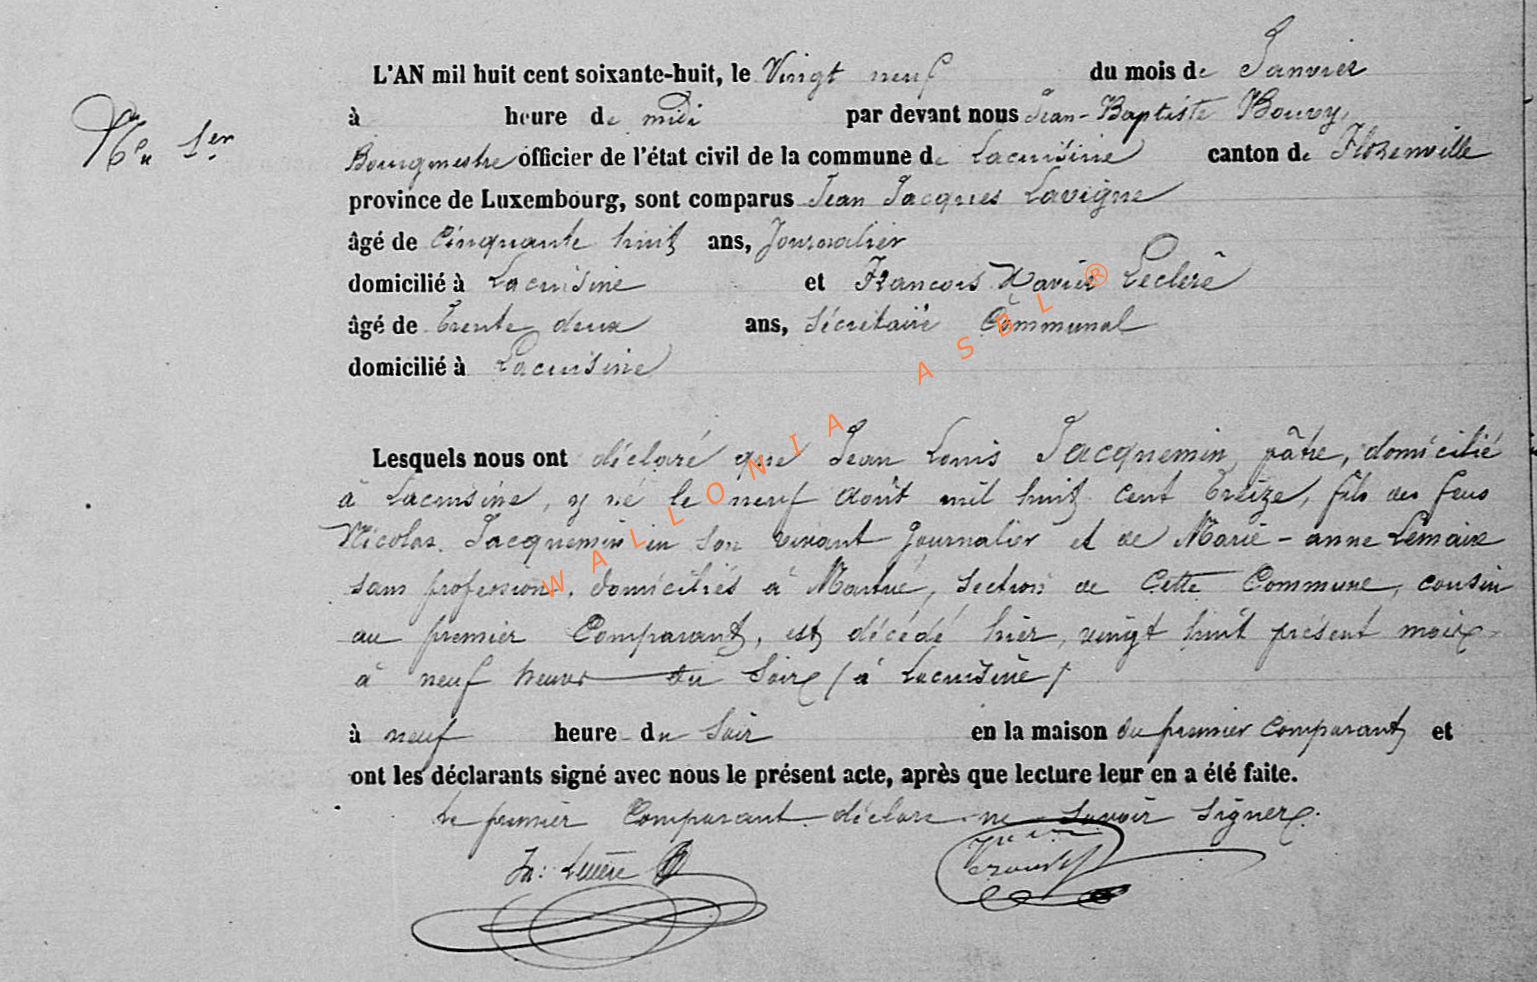 L'AN mil huit cent soixante-huit, le Vingt neuf du mois de Janvier
à heure de midi par devant nous Jean-Baptiste Bouvy,
N° 1er
Bourgmestre officier de l'état civil de la commune de Lacuisine canton de Florenville
province de Luxembourg, sont comparus Jean Jacques Lavigne
âgé de Cinquante huit ans, Journalier
domicilié à Lacuisine et Francois Xavier Leclère
âgé de trente deux ans, Sécrétaire Communal
domicilié à Lacuisine
Lesquels nous ont déclaré que Jean Louis Jacquemin, pâtre, domicilié
à Lacuisine, y né le neuf août mil huit cent treize, fils des feus
Nicolas Jacquemin en son vivant Journalier et de Marie-anne Lemaire
sans profession, domiciliés à Martué, section de Cette Commune, cousin
au premier Comparant, est décédé hier, vingt huit présent mois
à neuf heures du Soir (à Lacuisine)
à neuf heure du Soir en la maison du premier Comparant et
ont les déclarants signé avec nous le présent acte, après que lecture leur en a été faite.
Le premier Comparant déclare ne Savoir Signer.
WALLONIA ASBL ®